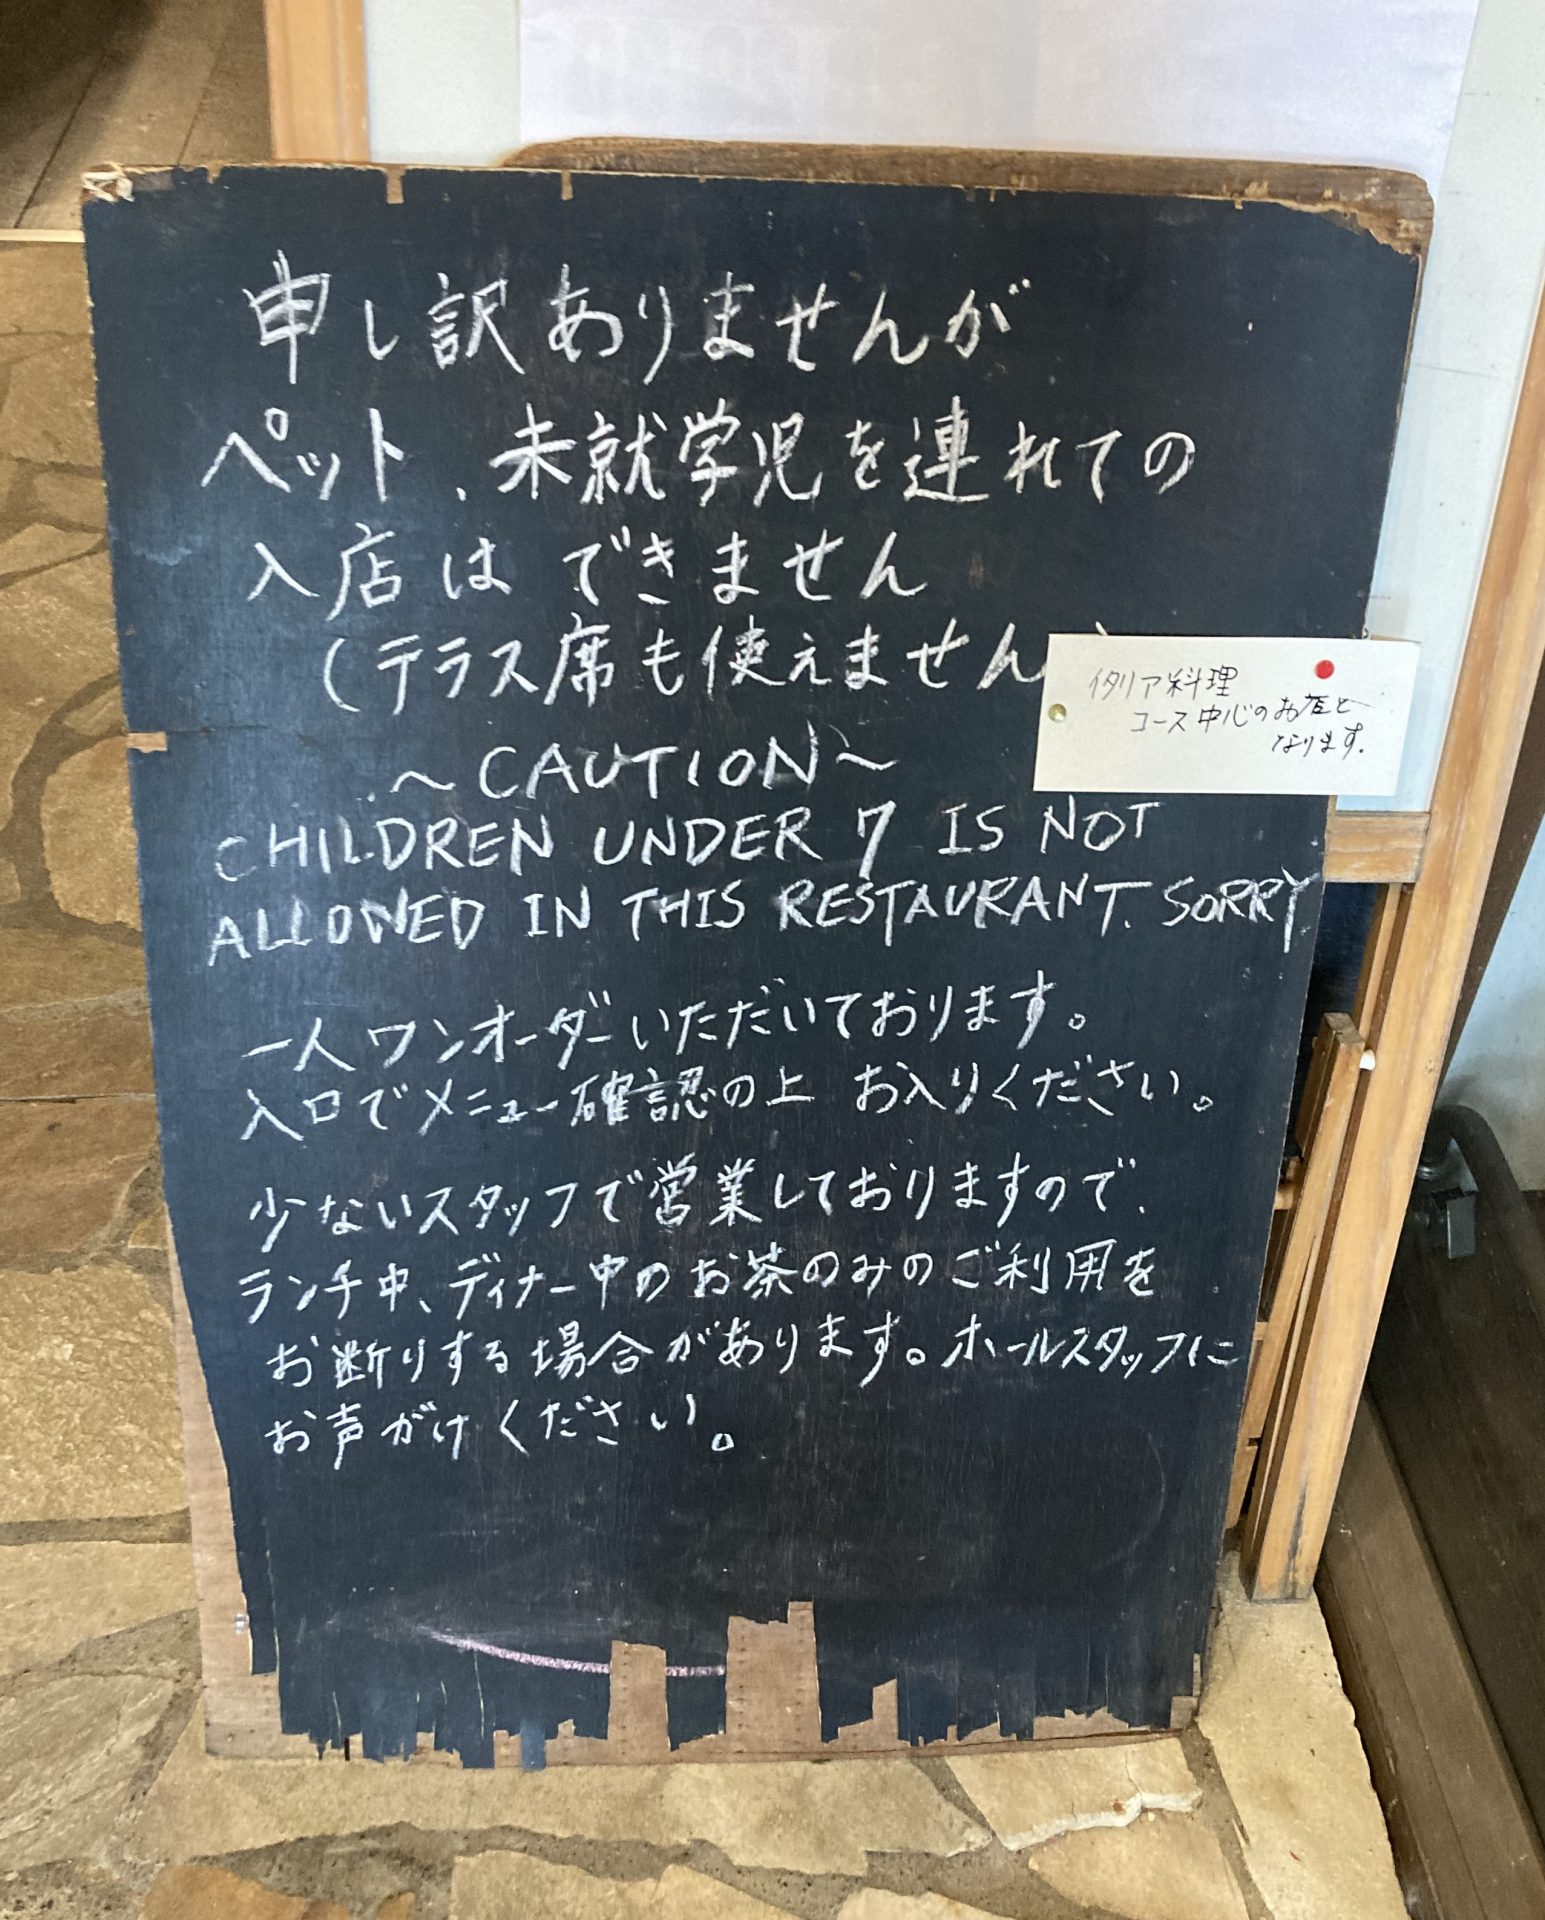 申し訳ありませんが
ペット、未就学児を連れての
入店はできません
(テラス席も使えません)
イタリア料理
コース中心のお店と
なります.
～CAUTION～
CHILDREN UNDER 7 IS NOT
ALLOWED IN THIS RESTAURANT. SORRY
一人ワンオーダーいただいております。
入口でメニュー確認の上 お入りください。
少ないスタッフで営業しておりますので、
ランチ中、ディナー中のお茶のみのご利用を
お断りする場合があります。ホールスタッフに
お声がけください。